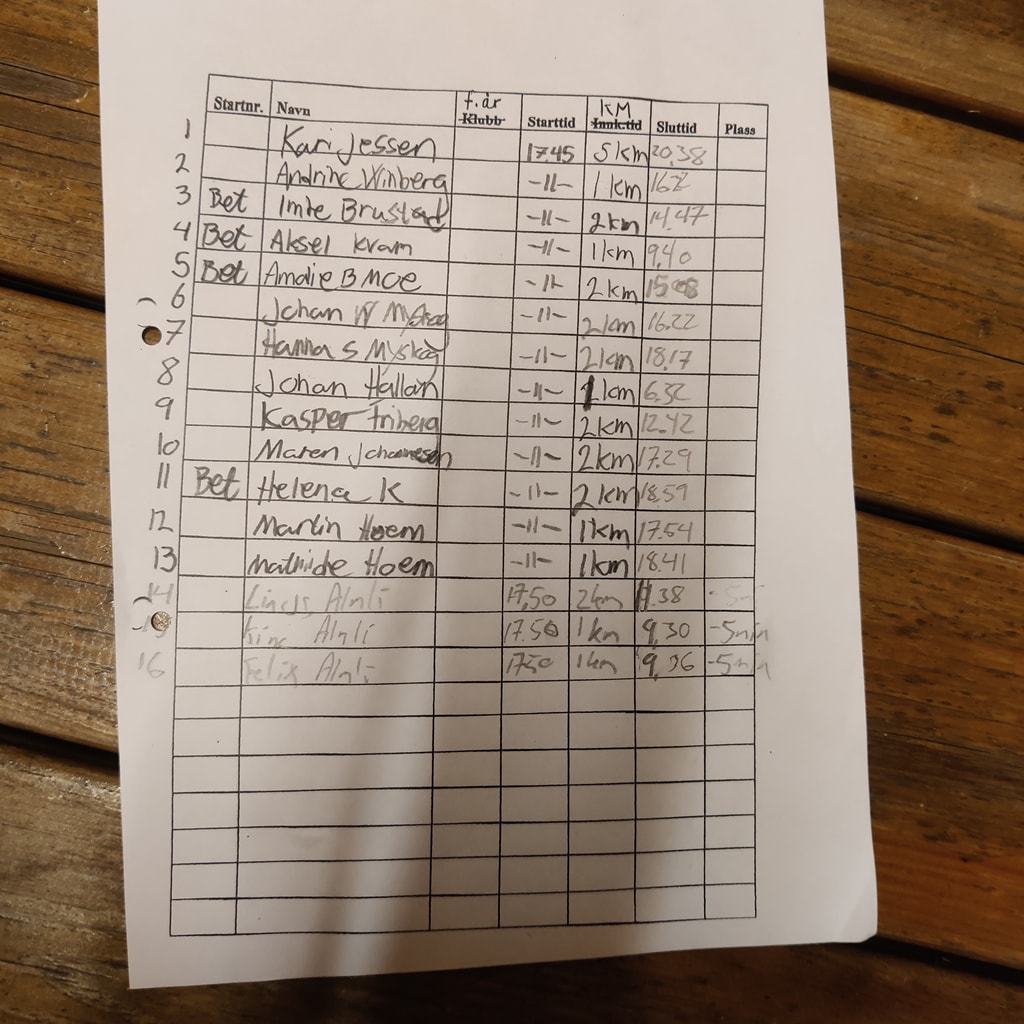 f. år KM
Startnr. Navn Klubb Starttid Innk.tid Sluttid Plass
1 Kari Jessen 17.45 5 km 20.38
2 Andrine Winberg -11- 1 km
3 Bet Brustad -11- 2 km 14.47
4 Bet Aksel Kvam -11- 1 km 9,40
5 Bet Amalie B Moe -11- 2 km
6 Johan W Myskog -11- 2 km 16.22
7 Hanna S Myskog -11- 2 km 18.17
8 Johan Hallan -11- 1 km 6.32
9 Kasper Friberg -11- 2 km 12.42
10 Maren Johannesen -11- 2 km 17.29
11 Bet Helena K -11- 2 km 18.59
12 Martin Hoem -11- 1 km 17.54
13 Mathilde Hoem -11- 1 km 18.41
14 Alnli 17.50 2 km 11.38
15 Alnli 17.50 1 km 9.30 -5min
16 Felix Alnli 17.50 1 km 9.36 -5min